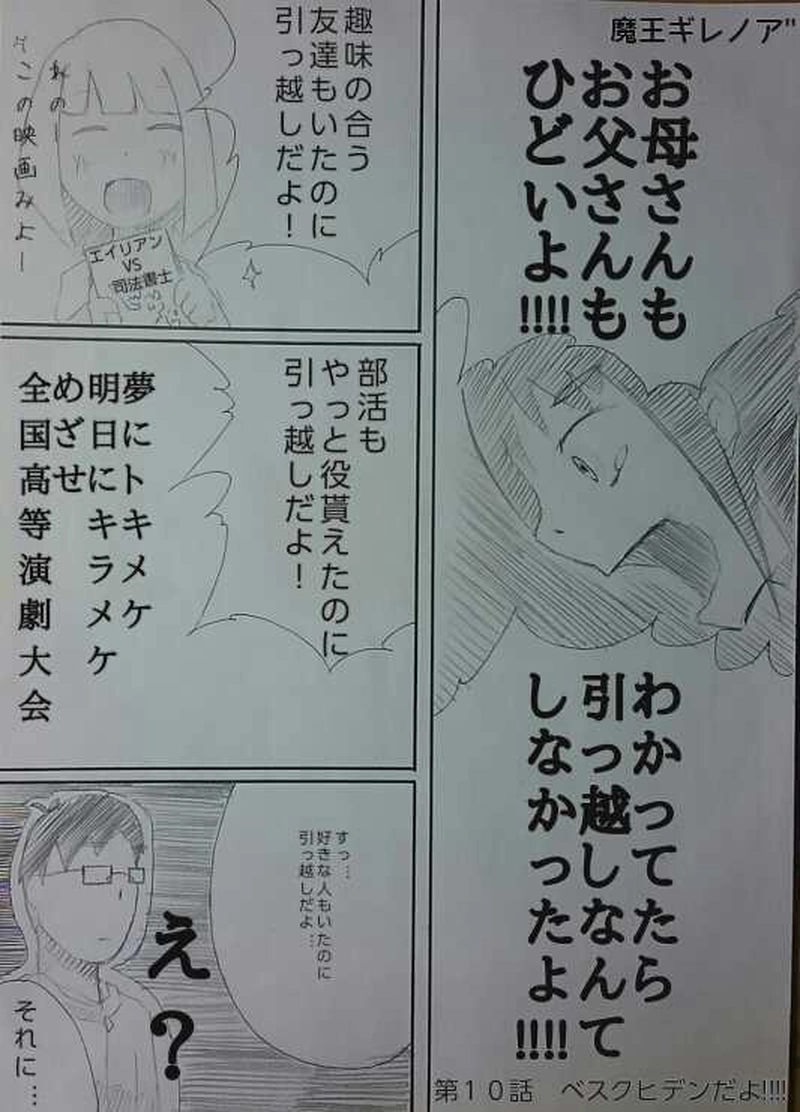 魔王ギレノア"
お母さんも
お父さんも
ひどいよ!!!!
わかってたら
引っ越しなんて
しなかったよ!!!!
第１０話　ベスクヒデンだよ!!!!
趣味の合う
友達もいたのに
引っ越しだよ！
あのー
この映画みよー
エイリアン
VS
司法書士
部活も
やっと役貰えたのに
引っ越しだよ！
夢にトキメケ
明日にキラメケ
めざせ
全国高等演劇大会
すっ…
好きな人もいたのに
引っ越しだよ…
え？
それに…